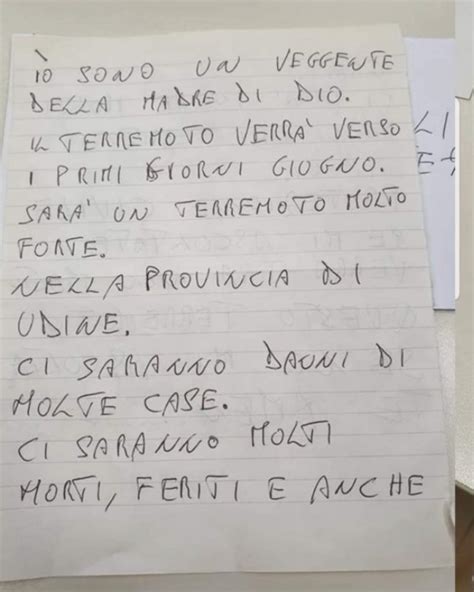 IO SONO UN VEGGENTE
DELLA MADRE DI DIO.
IL TERREMOTO VERRA' VERSO
I PRIMI GIORNI GIOGNO.
SARA' UN TERREMOTO MOLTO
FORTE.
NELLA PROVINCIA DI
UDINE.
CI SARANNO DAUNI DI
MOLTE CASE.
CI SARANNO MOLTI
MORTI, FERITI E ANCHE
LI